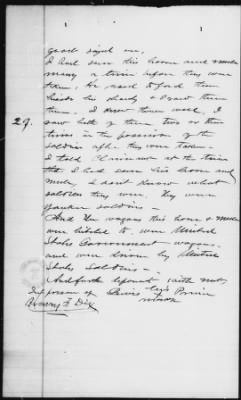 good sized one,
I had seen his horse and mule
many a time before they were
taken, He used to feed them
beside his shady & I saw them
then, I knew them well, I
saw both of them two or three
times in the possession of the
soldiers after they were taken.
29. I told Claimant at the time
that I had seen his horse and
mule, I don't know what
soldiers they were. They were
yankee soldiers.
And the wagons this horse & mule
were hitched to were United
States Government wagons,
and were driven by United
States Soldiers.
And further deponent saith not
In presence of
Harry F. Dix
mark